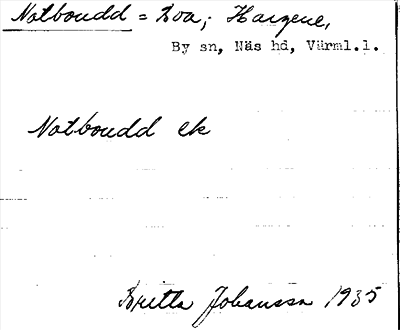 Notboudd = Loa; Hargene,
By sn, Näs hd, Värml.l.
Notboudd ek
Britta Johansson 1935